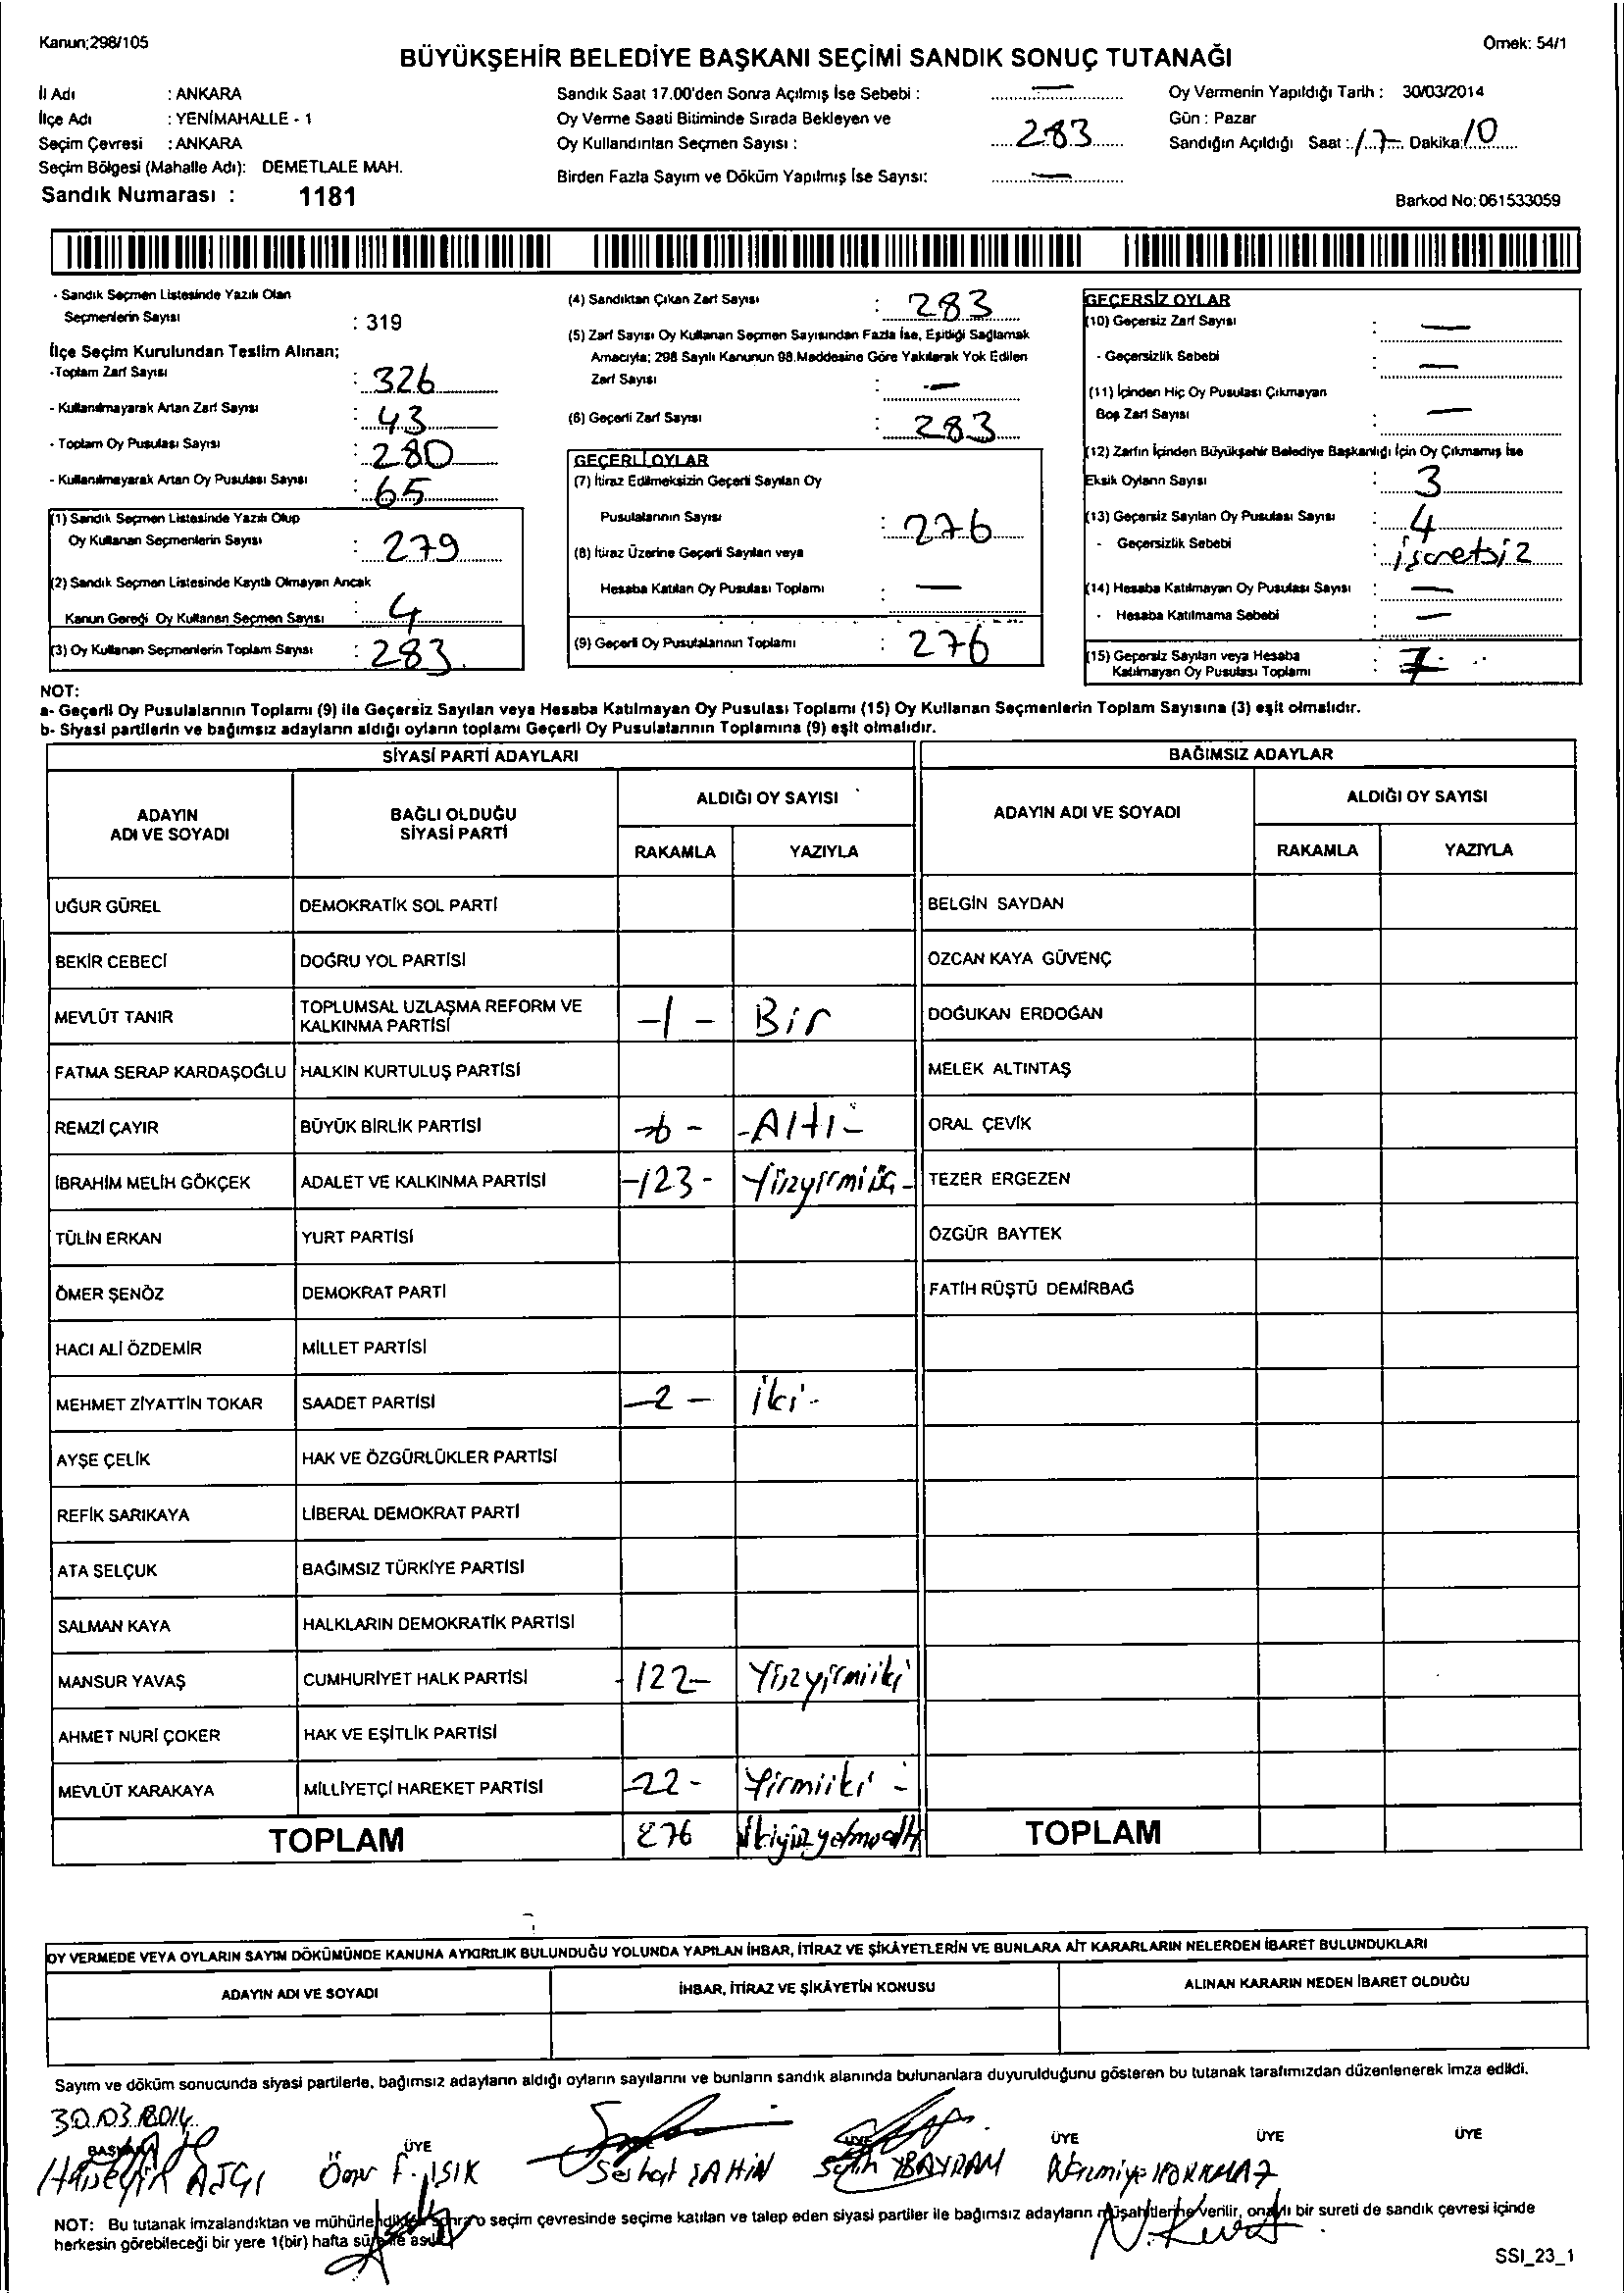 Kanun;298/105
Örnek: 54/1
BÜYÜKŞEHİR BELEDİYE BAŞKANI SEÇİMİ SANDIK SONUÇ TUTANAĞI
İl Adı : ANKARA
İlçe Adı : YENİMAHALLE - 1
Seçim Çevresi : ANKARA
Seçim Bölgesi (Mahalle Adı): DEMETLALE MAH.
Sandık Numarası : 1181
Sandık Saat 17.00'den Sonra Açılmış İse Sebebi : —
Oy Verme Saati Bitiminde Sırada Bekleyen ve
Oy Kullandırılan Seçmen Sayısı : 283
Birden Fazla Sayım ve Döküm Yapılmış İse Sayısı: —
Oy Vermenin Yapıldığı Tarih : 30/03/2014
Gün : Pazar
Sandığın Açıldığı Saat : 17 Dakika: 10
Barkod No: 061533059
- Sandık Seçmen Listesinde Yazılı Olan
Seçmenlerin Sayısı : 319
İlçe Seçim Kurulundan Teslim Alınan;
-Toplam Zarf Sayısı : 326
- Kullanılmayarak Artan Zarf Sayısı : 43
- Toplam Oy Pusulası Sayısı : 280
- Kullanılmayarak Artan Oy Pusulası Sayısı : 65
(1) Sandık Seçmen Listesinde Yazılı Olup
Oy Kullanan Seçmenlerin Sayısı : 279
(2) Sandık Seçmen Listesinde Kayıtlı Olmayan Ancak
Kanun Gereği Oy Kullanan Seçmen Sayısı : 4
(3) Oy Kullanan Seçmenlerin Toplam Sayısı : 283
(4) Sandıktan Çıkan Zarf Sayısı : 283
(5) Zarf Sayısı Oy Kullanan Seçmen Sayısından Fazla İse, Eşitliği Sağlamak
Amacıyla; 298 Sayılı Kanunun 98.Maddesine Göre Yakılarak Yok Edilen
Zarf Sayısı : —
(6) Geçerli Zarf Sayısı : 283
GEÇERLİ OYLAR
(7) İtiraz Edilmeksizin Geçerli Sayılan Oy
Pusulalarının Sayısı : 276
(8) İtiraz Üzerine Geçerli Sayılan veya
Hesaba Katılan Oy Pusulası Toplamı : —
(9) Geçerli Oy Pusulalarının Toplamı : 276
GEÇERSİZ OYLAR
(10) Geçersiz Zarf Sayısı : —
- Geçersizlik Sebebi : —
(11) İçinden Hiç Oy Pusulası Çıkmayan
Boş Zarf Sayısı : —
(12) Zarfın İçinden Büyükşehir Belediye Başkanlığı İçin Oy Çıkmamış İse
Eksik Oyların Sayısı : 3
(13) Geçersiz Sayılan Oy Pusulası Sayısı : 4
- Geçersizlik Sebebi : işcretsiz
(14) Hesaba Katılmayan Oy Pusulası Sayısı : —
- Hesaba Katılmama Sebebi : —
(15) Geçersiz Sayılan veya Hesaba
Katılmayan Oy Pusulası Toplamı : 7
NOT:
a- Geçerli Oy Pusulalarının Toplamı (9) ile Geçersiz Sayılan veya Hesaba Katılmayan Oy Pusulası Toplamı (15) Oy Kullanan Seçmenlerin Toplam Sayısına (3) eşit olmalıdır.
b- Siyasi partilerin ve bağımsız adayların aldığı oyların toplamı Geçerli Oy Pusulalarının Toplamına (9) eşit olmalıdır.
SİYASİ PARTİ ADAYLARI BAĞIMSIZ ADAYLAR
ADAYIN ADI VE SOYADI BAĞLI OLDUĞU SİYASİ PARTİ ALDIĞI OY SAYISI ADAYIN ADI VE SOYADI ALDIĞI OY SAYISI
RAKAMLA YAZIYLA RAKAMLA YAZIYLA
UĞUR GÜREL DEMOKRATİK SOL PARTİ BELGİN SAYDAN
BEKİR CEBECİ DOĞRU YOL PARTİSİ ÖZCAN KAYA GÜVENÇ
MEVLÜT TANIR TOPLUMSAL UZLAŞMA REFORM VE KALKINMA PARTİSİ -1- Bir DOĞUKAN ERDOĞAN
FATMA SERAP KARDAŞOĞLU HALKIN KURTULUŞ PARTİSİ MELEK ALTINTAŞ
REMZİ ÇAYIR BÜYÜK BİRLİK PARTİSİ -6- -Altı- ORAL ÇEVİK
İBRAHİM MELİH GÖKÇEK ADALET VE KALKINMA PARTİSİ -123- Yüzyirmiüç- TEZER ERGEZEN
TÜLİN ERKAN YURT PARTİSİ ÖZGÜR BAYTEK
ÖMER ŞENÖZ DEMOKRAT PARTİ FATİH RÜŞTÜ DEMİRBAĞ
HACI ALİ ÖZDEMİR MİLLET PARTİSİ
MEHMET ZİYATTİN TOKAR SAADET PARTİSİ -2- iki-
AYŞE ÇELİK HAK VE ÖZGÜRLÜKLER PARTİSİ
REFİK SARIKAYA LİBERAL DEMOKRAT PARTİ
ATA SELÇUK BAĞIMSIZ TÜRKİYE PARTİSİ
SALMAN KAYA HALKLARIN DEMOKRATİK PARTİSİ
MANSUR YAVAŞ CUMHURİYET HALK PARTİSİ -122- Yüzyirmiiki
AHMET NURİ ÇOKER HAK VE EŞİTLİK PARTİSİ
MEVLÜT KARAKAYA MİLLİYETÇİ HAREKET PARTİSİ -22- Yirmiiki -
TOPLAM 276 ikiyüzyetmişaltı TOPLAM
OY VERMEDE VEYA OYLARIN SAYIM DÖKÜMÜNDE KANUNA AYKIRILIK BULUNDUĞU YOLUNDA YAPILAN İHBAR, İTİRAZ VE ŞİKÂYETLERİN VE BUNLARA AİT KARARLARIN NELERDEN İBARET BULUNDUKLARI
ADAYIN ADI VE SOYADI İHBAR, İTİRAZ VE ŞİKÂYETİN KONUSU ALINAN KARARIN NEDEN İBARET OLDUĞU
Sayım ve döküm sonucunda siyasi partilerle, bağımsız adayların aldığı oyların sayılarını ve bunların sandık alanında bulunanlara duyurulduğunu gösteren bu tutanak tarafımızdan düzenlenerek imza edildi.
30.03.2014
BAŞKAN ÜYE ÜYE ÜYE ÜYE ÜYE
Ömer F. IŞIK Serhat ŞAHİN BAYRAM KORKMAZ
NOT: Bu tutanak imzalandıktan ve mühürlendikten sonra o seçim çevresinde seçime katılan ve talep eden siyasi partiler ile bağımsız adayların müşahitlerine verilir, onaylı bir sureti de sandık çevresi içinde
herkesin görebileceği bir yere 1(bir) hafta süre ile asılır.
SSI_23_1